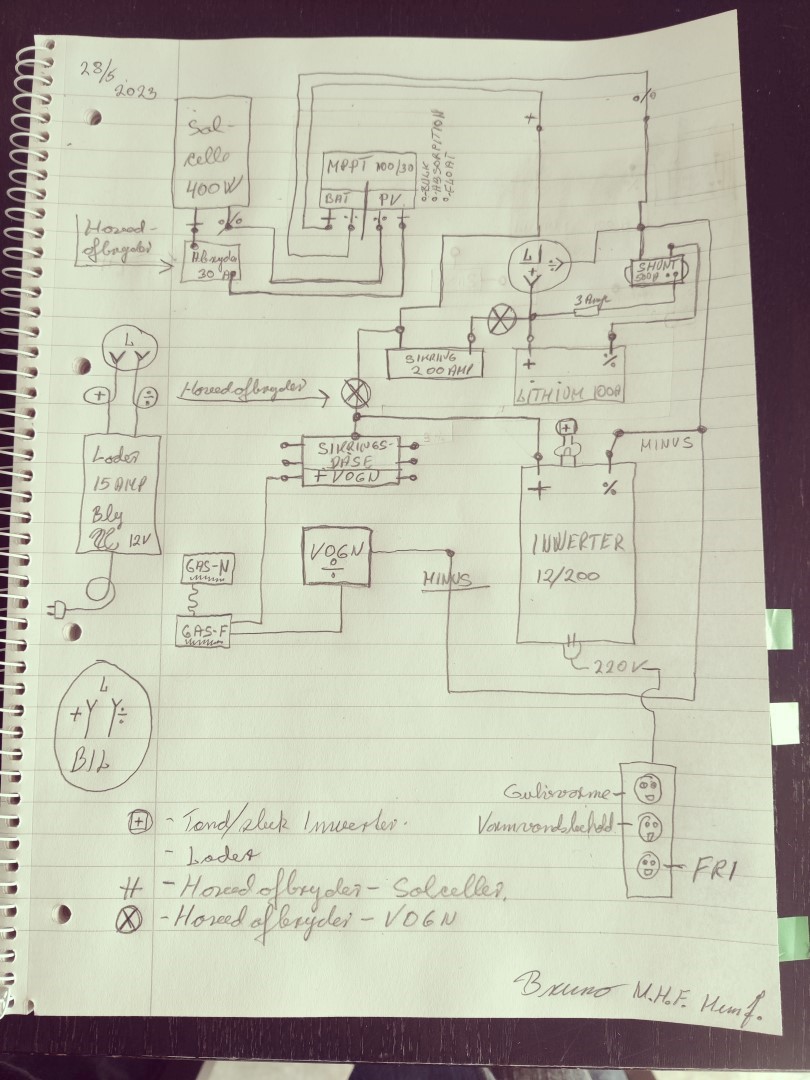 28/5
2023
Sol-
celle
400W
+
%
Hoved-
afbryder
Afbryder
30 A
MPPT 100/30
BAT PV
+ ÷ ÷ +
o BULK
o ABSORPTION
o FLOAT
+
%
L
+ ÷
SHUNT
500A
3 Amp
SIKRING
200 AMP
+ %
LITHIUM 100A
L
+ ÷
Lader
15 AMP
Bly
12V
Hovedafbryder
SIKRINGS-
DÅSE
+ VOGN
+
MINUS
+ %
INVERTER
12/200
220V
VOGN
÷
MINUS
GAS-N
GAS-F
L
+ ÷
BIL
Gulvvarme
Varmvandsbehold
FRI
+ - Tænd/sluk Inverter.
- Lader
- Hovedafbryder - Solceller.
- Hovedafbryder - VOGN
Bruno M.H.F.